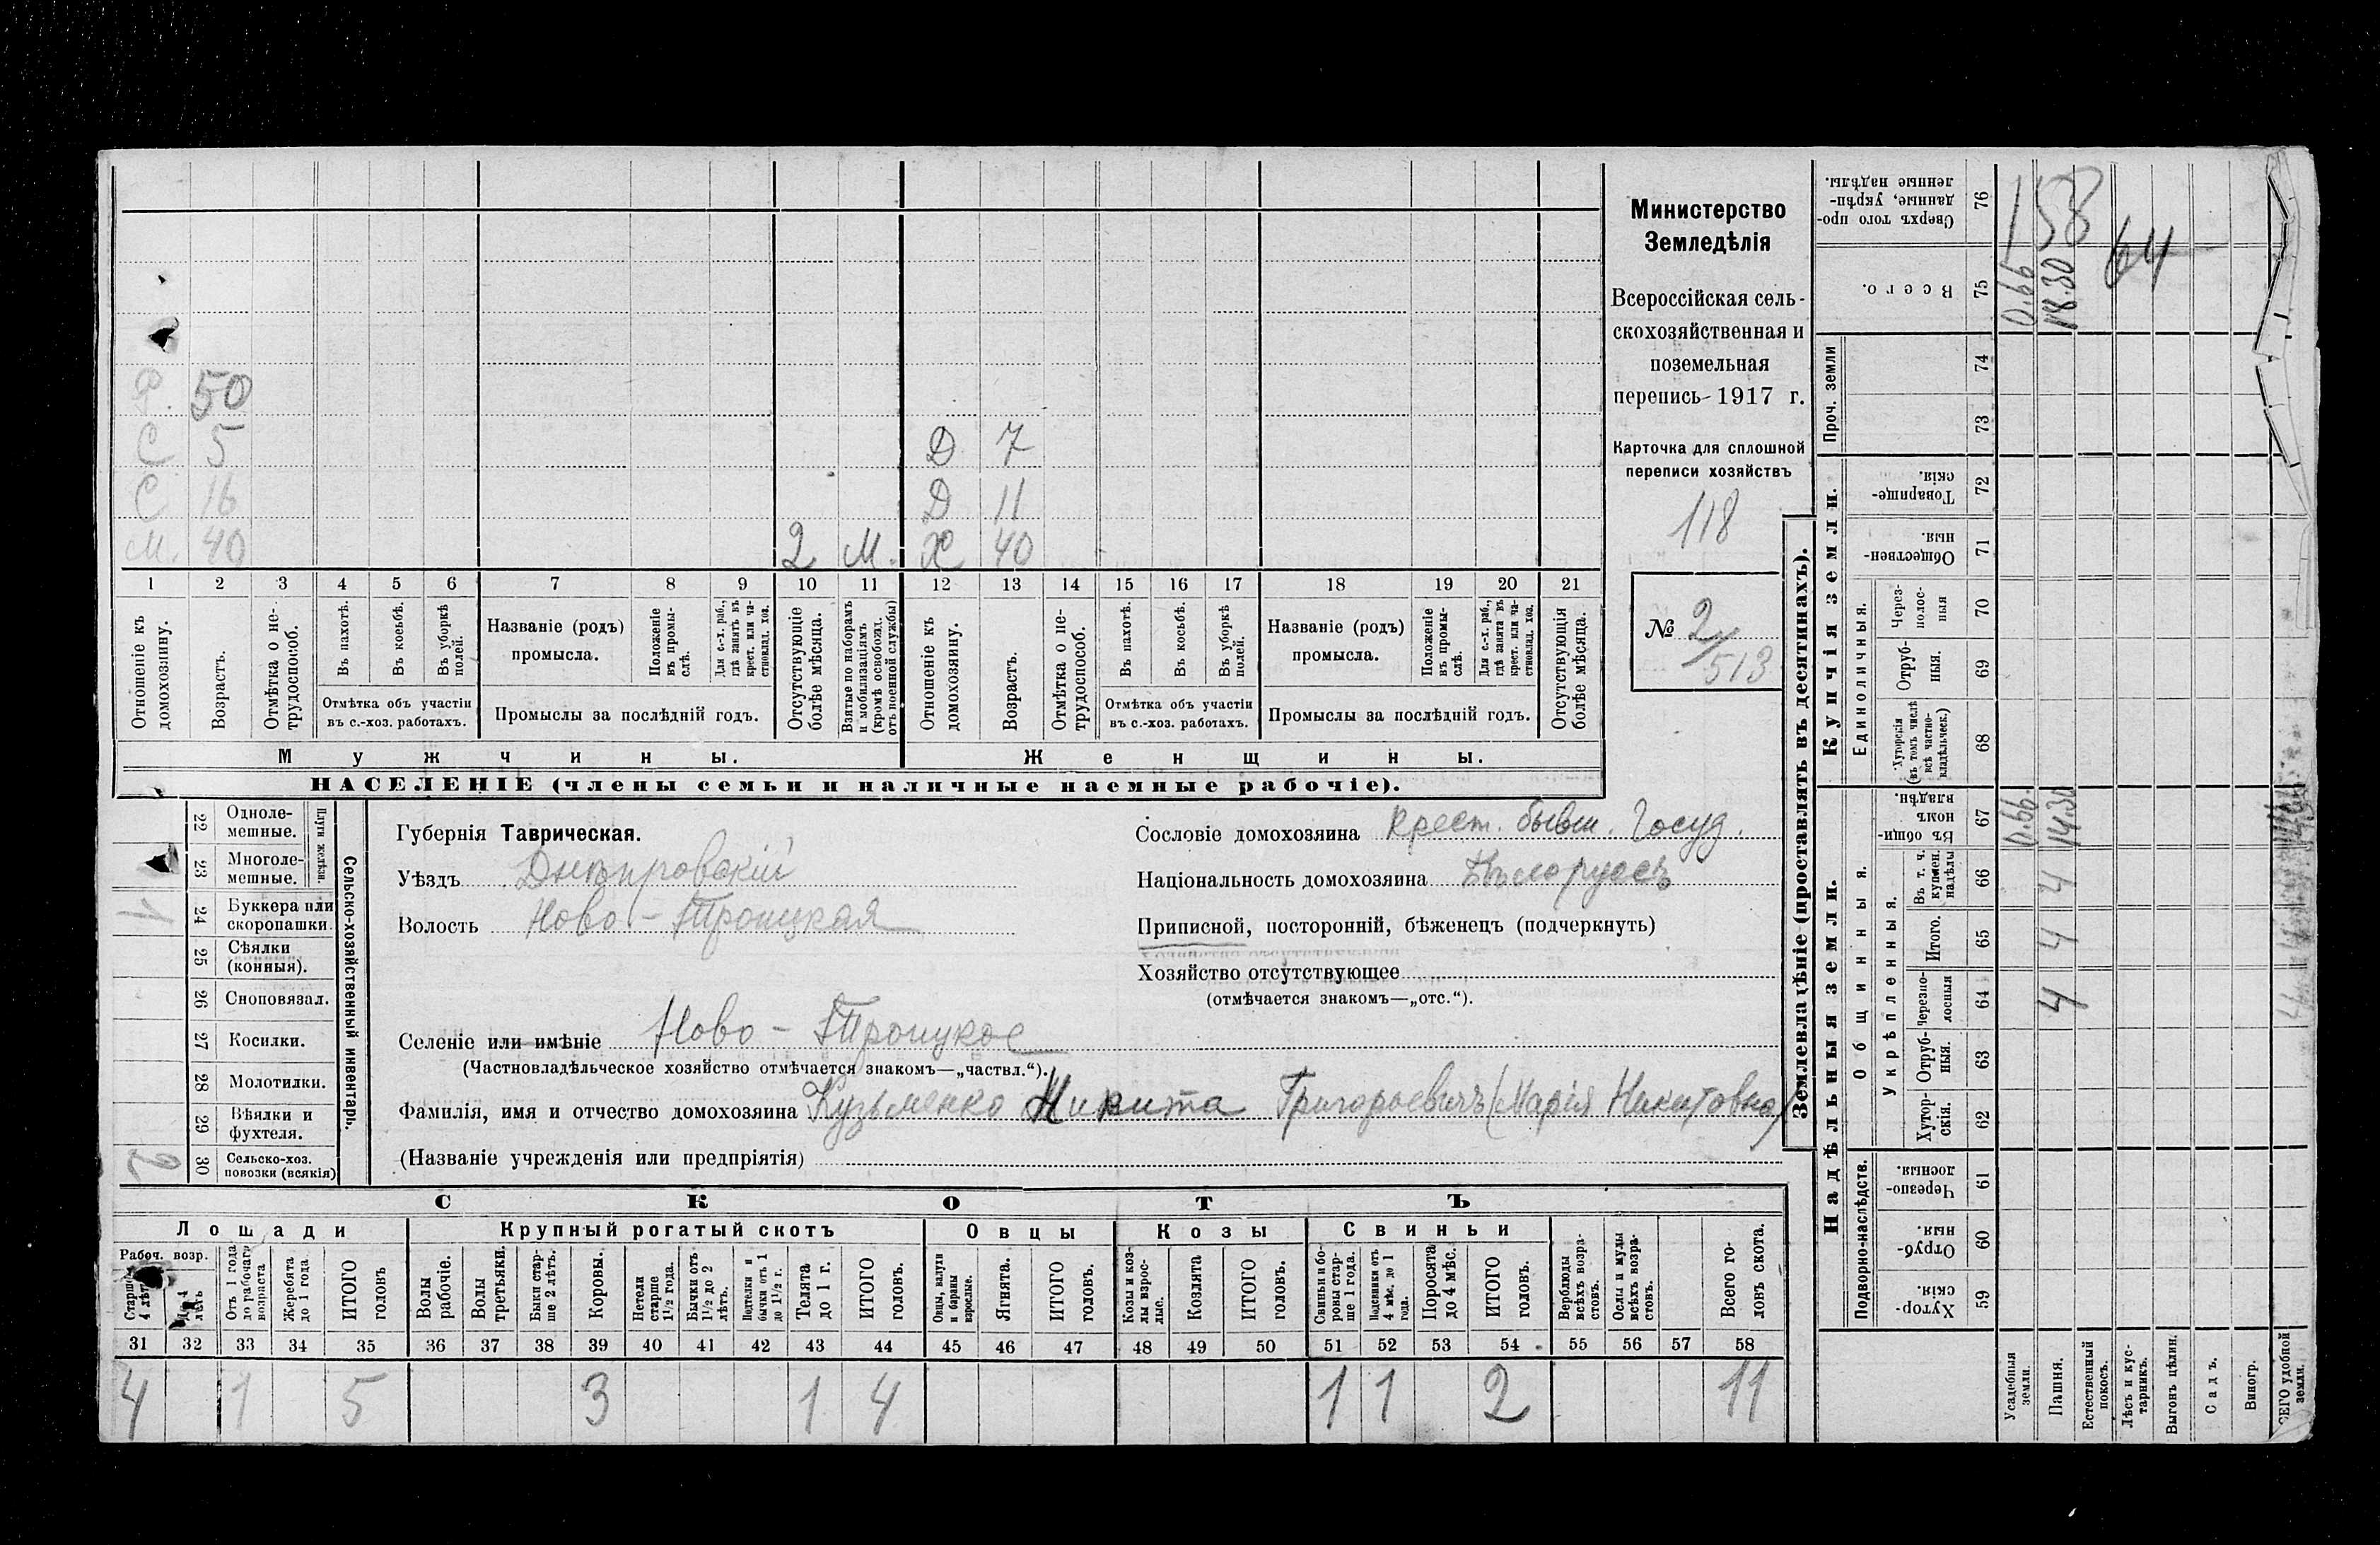 Министерство
Земледѣлія
Всероссійская сель-
скохозяйственная и
поземельная
перепись 1917 г.
Карточка для сплошной
переписи хозяйствъ
118
№ 2/513
Р. 50
С 5 Д 7
С 16 Д 11
М. 40 2 М. Х 40
1 2 3 4 5 6 7 8 9 10 11 12 13 14 15 16 17 18 19 20 21
Отношеніе къ домохозяину.
Возрастъ.
Отмѣтка о не-трудоспособ.
Въ пахотѣ.
Въ косьбѣ.
Въ уборкѣ полей.
Отмѣтка объ участіи въ с.-хоз. работахъ.
Названіе (родъ) промысла.
Положеніе въ промы-слѣ.
Для с.-х. раб., гдѣ занятъ въ крест. или ча-стновлад. хоз.
Промыслы за послѣдній годъ.
Отсутствующіе болѣе мѣсяца.
Взятые по наборамъ и мобилизаціямъ (кромѣ освобожд. отъ военной службы)
Отношеніе къ домохозяину.
Возрастъ.
Отмѣтка о не-трудоспособ.
Въ пахотѣ.
Въ косьбѣ.
Въ уборкѣ полей.
Отмѣтка объ участіи въ с.-хоз. работахъ.
Названіе (родъ) промысла.
Положеніе въ промы-слѣ.
Для с.-х. раб., гдѣ занята въ крест. или ча-стновлад. хоз.
Промыслы за послѣдній годъ.
Отсутствующія болѣе мѣсяца.
Мужчины. Женщины.
НАСЕЛЕНІЕ (члены семьи и наличные наемные рабочіе).
Сельско-хозяйственный инвентарь.
Плуги желѣзн.
22 Одноле-мешные.
23 Многоле-мешные.
24 Буккера или скоропашки. 1
25 Сѣялки (конныя).
26 Сноповязал.
27 Косилки.
28 Молотилки.
29 Вѣялки и фухтеля.
30 Сельско-хоз. повозки (всякія) 2
Губернія Таврическая.
Уѣздъ Днѣпровскій
Волость Ново-Троицкая
Селеніе или имѣніе Ново-Троицкое
(Частновладѣльческое хозяйство отмѣчается знакомъ—„частвл.“).
Фамилія, имя и отчество домохозяина Кузьменко Никита Григорьевичъ (Марія Никитовна)
(Названіе учрежденія или предпріятія)
Сословіе домохозяина Крест. бывш. Госуд.
Національность домохозяина Бѣлоруссъ
Приписной, посторонній, бѣженецъ (подчеркнуть)
Хозяйство отсутствующее
(отмѣчается знакомъ—„отс.“).
СКОТЪ
Лошади Крупный рогатый скотъ Овцы Козы Свиньи
Рабоч. возр.
Старше 4 лѣтъ
До 4 лѣтъ
Отъ 1 года до рабочаго возраста
Жеребята до 1 года
ИТОГО головъ
Волы рабочіе.
Волы третьяки.
Быки стар-ше 2 лѣтъ.
Коровы.
Нетели старше 1½ года.
Бычки отъ 1½ до 2 лѣтъ.
Подтелки и бычки отъ 1 до 1½ г.
Телята до 1 г.
ИТОГО головъ.
Овцы, валухи и бараны взрослые.
Ягнята.
ИТОГО головъ.
Козы и коз-лы взрос-лые.
Козлята
ИТОГО головъ.
Свиньи и бо-ровы стар-ше 1 года.
Подсвинки отъ 4 мѣс. до 1 года.
Поросята до 4 мѣс.
ИТОГО головъ.
Верблюды всѣхъ возра-стовъ.
Ослы и мулы всѣхъ возра-стовъ.
Всего го-ловъ скота.
31 32 33 34 35 36 37 38 39 40 41 42 43 44 45 46 47 48 49 50 51 52 53 54 55 56 57 58
4 1 5 3 1 4 1 1 2 11
Землевладѣніе (проставлять въ десятинахъ).
Надѣльныя земли. Купчія земли. Проч. земли
Подворно-наслѣдств.
Общинныя.
Укрѣпленныя.
Единоличныя.
59 Хутор-скія.
60 Отруб-ныя.
61 Черезпо-лосныя.
62 Хутор-скія.
63 Отруб-ныя.
64 Черезпо-лосныя
65 Итого.
66 Въ т. ч. куплен. надѣлы
67 Въ общин-номъ владѣн.
68 Хуторскія (въ томъ числѣ всѣ частно-владѣльческ.)
69 Отруб-ныя.
70 Через-полос-ныя
71 Обществен-ныя.
72 Товарище-скія.
73
74
75 Всего.
76 Сверхъ того про-данные, укрѣп-ленные надѣлы.
Усадебныя земли. 0.66. 0.66
Пашня. 4 4 4 14.30 18.30
Естественный покосъ.
Лѣсъ и кус-тарникъ.
Выгонъ цѣлин.
Садъ.
Виногр.
ВСЕГО удобной земли.
158
64